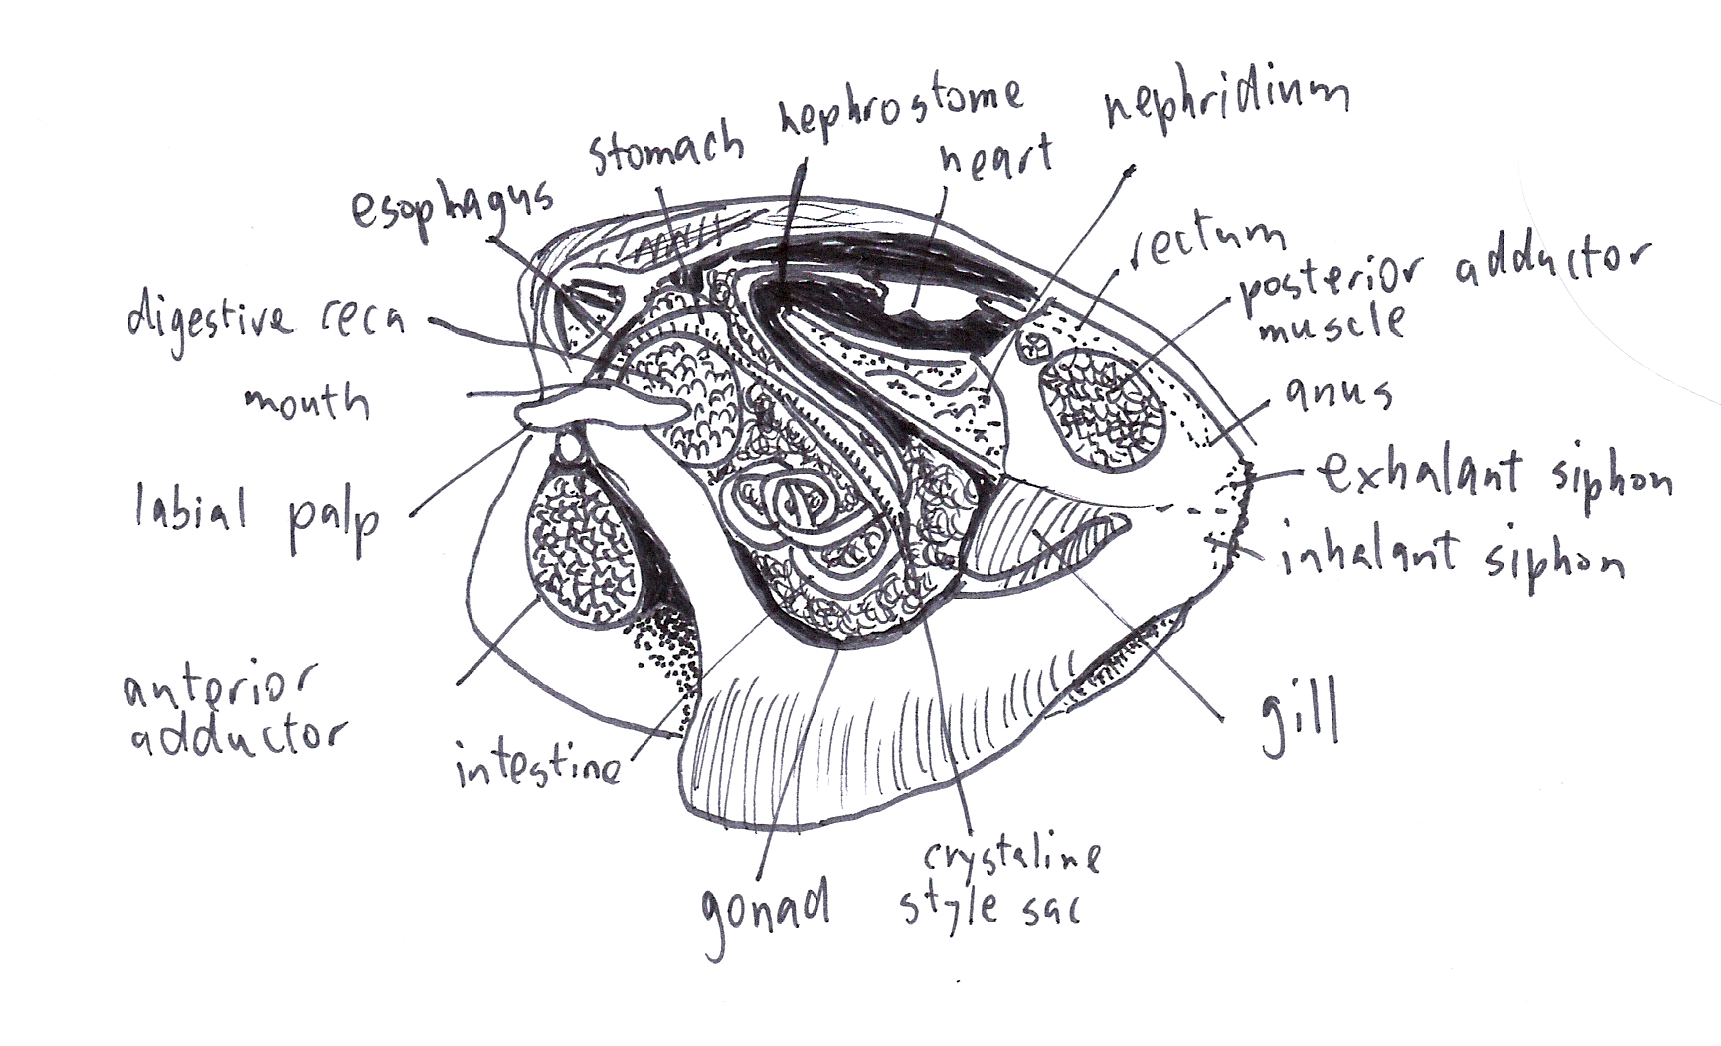 nephrostome
nephridinm
stomach
heart
esophagus
rectum
posterior adductor
muscle
digestive ceca
mouth
anus
exhalant siphon
labial palp
inhalant siphon
anterior
adductor
gill
intestine
crystaline
style sac
gonad